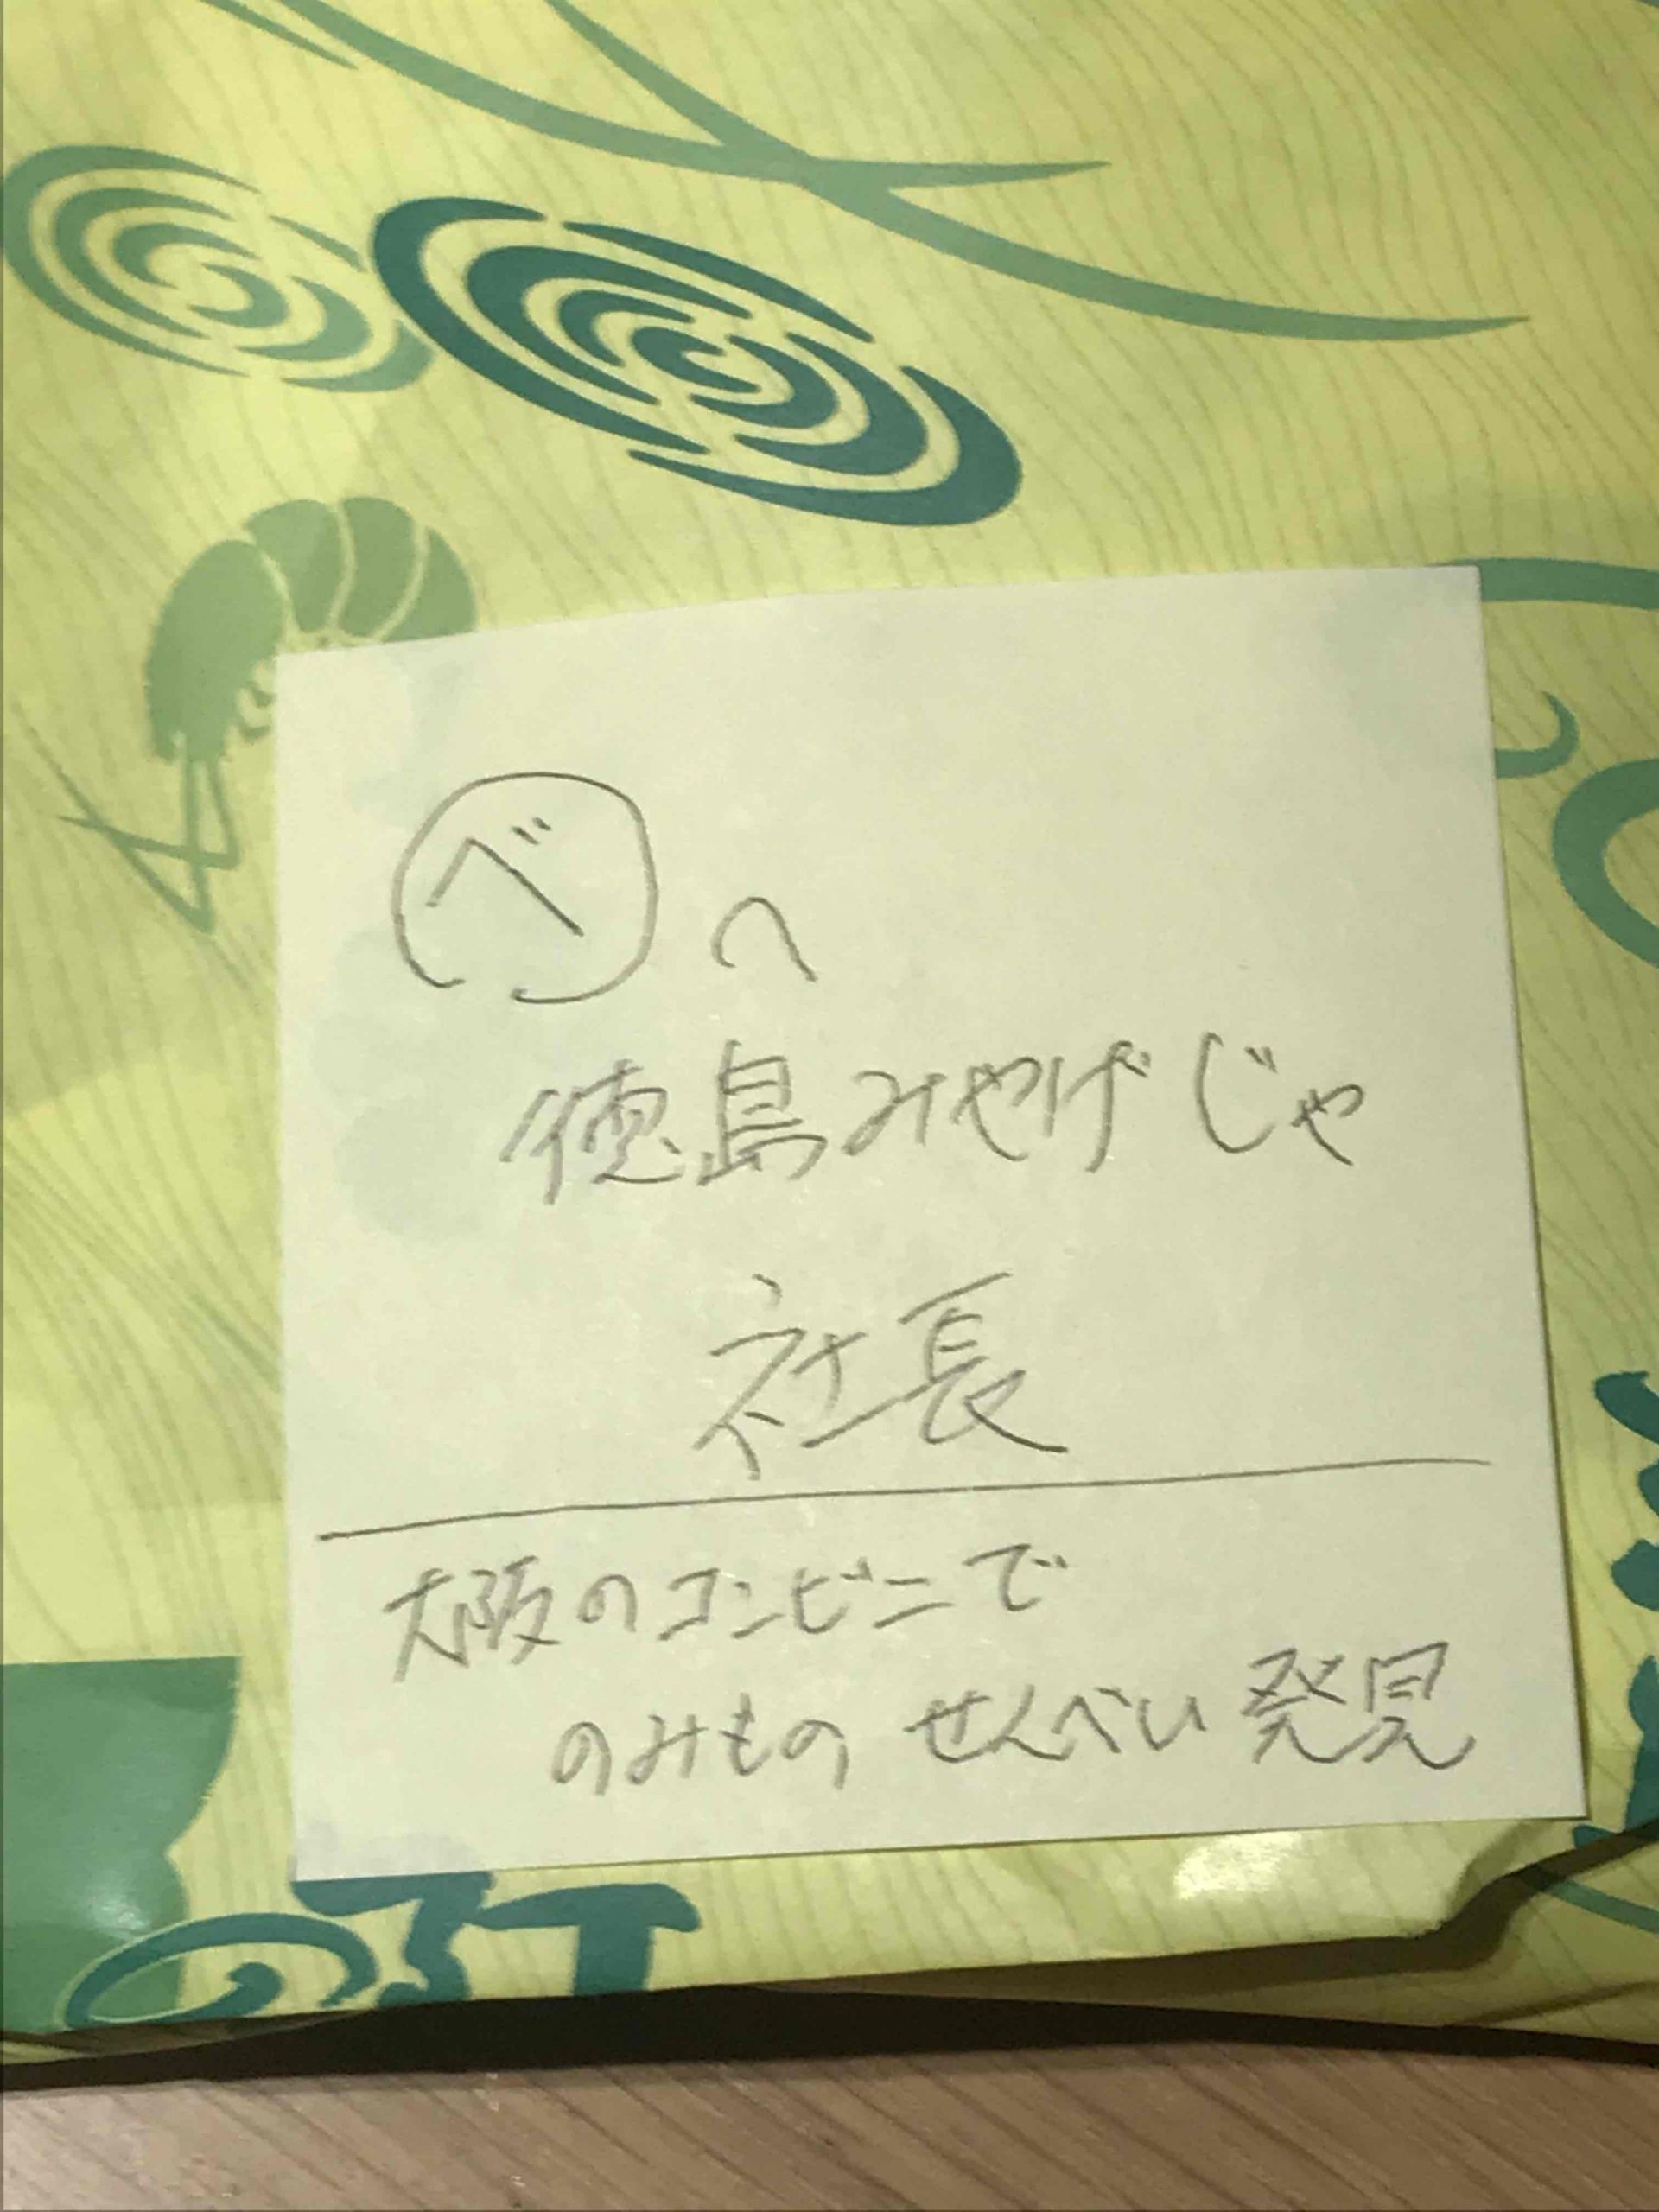 べへ
徳島みやげじゃ
社長
大阪のコンビニで
のみもの せんべい 発見